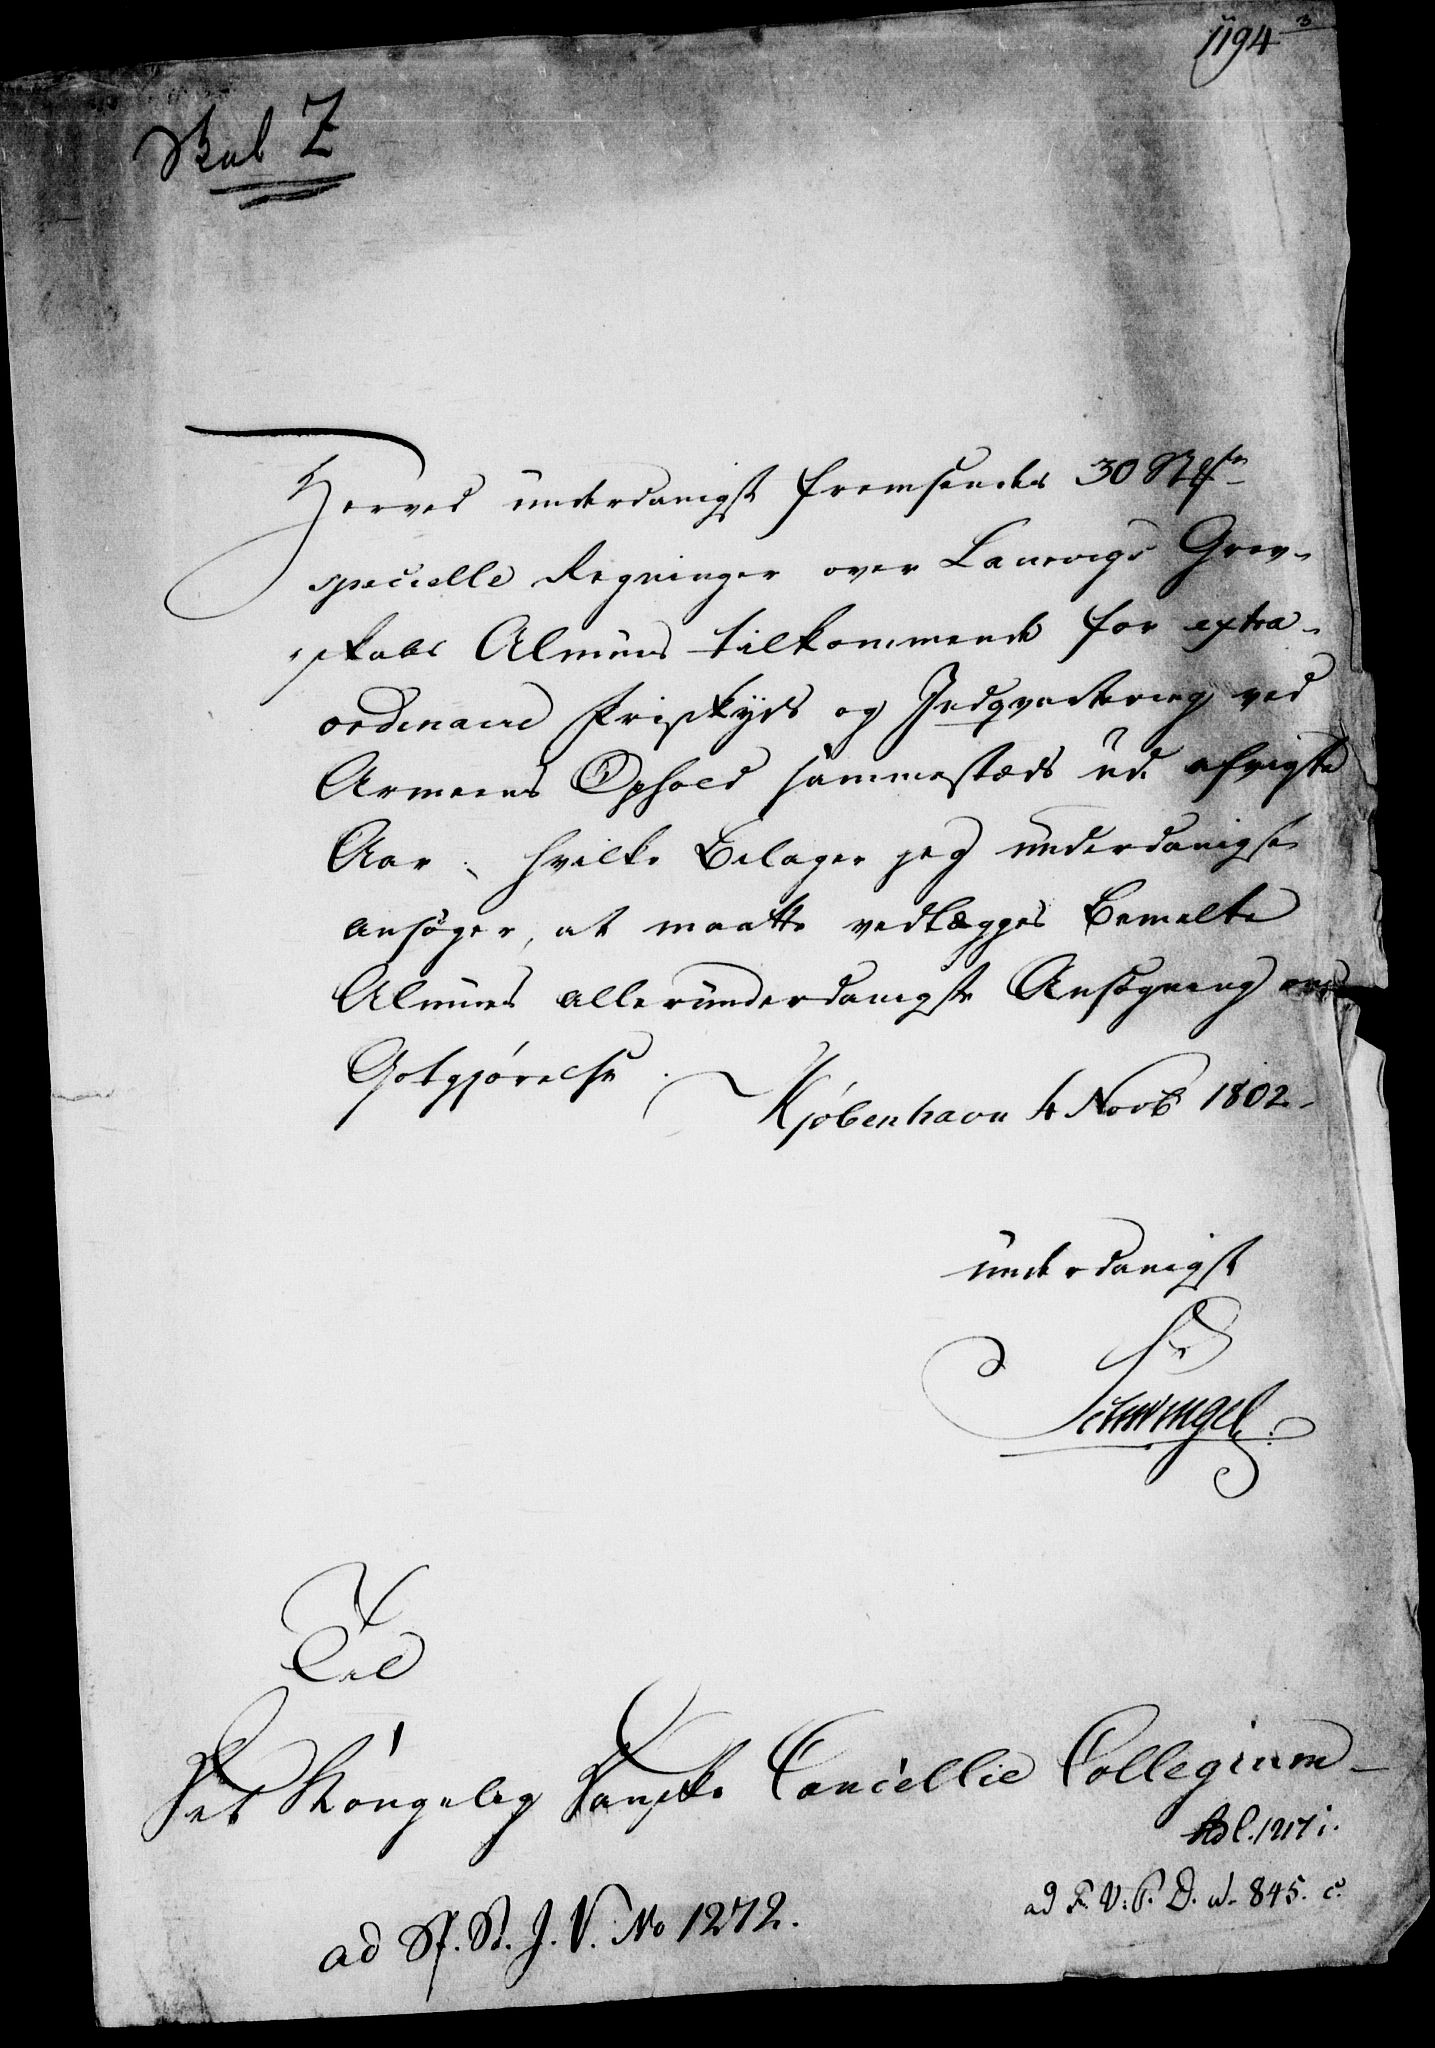 1194
3
Skab Z
Herved underdanigst fremsendes 30
specielle Regninger over Laurvigs Grev-
skabs Almues tilkommende for extra-
ordinaire Friskyds og Indqvartering ved
Armeens Ophold sammesteds udi afvigte
Aar; hvilke Bilager jeg underdanigst
ansøger, at maatte vedlægges Bemelte
Almues allerunderdanigste Ansøgning om
Gotgjørelse.
Kjöbenhavn 4 Novb 1802.
underdanigst
Til
Det Kongelig Danske Cancellie Collegium
1217 i.
ad F. V. P. D. 845. c.
ad Sf. St. J. V. No 1272.